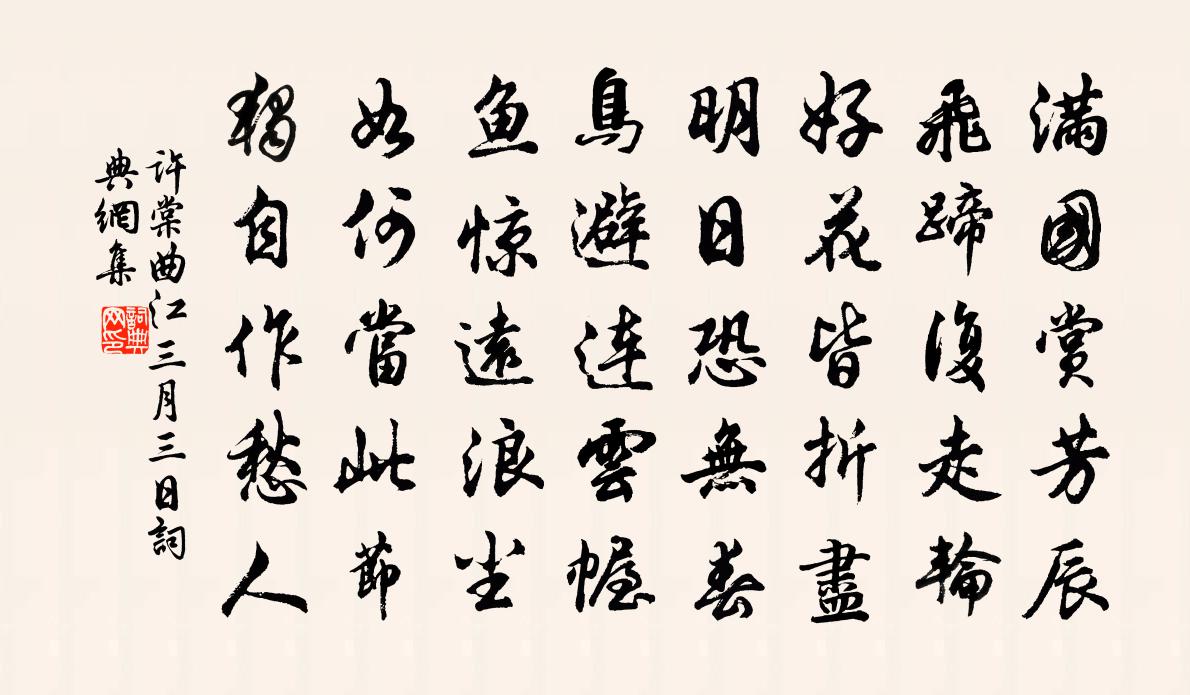 滿國賞芳辰
飛蹄復走輪
好花皆折盡
明日恐無春
鳥避連雲幄
魚惊遠浪尘
如何當此節
獨自作愁人
許棠曲江三月三日詞
典網集
詞典
网印